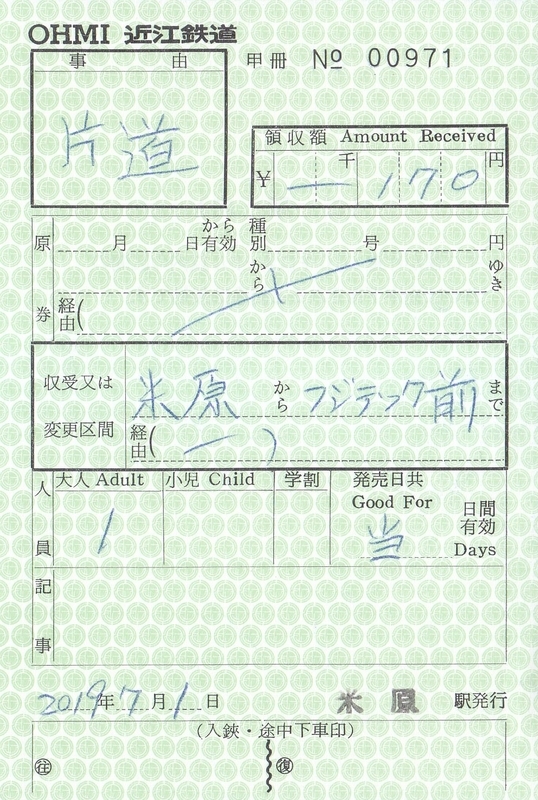 OHMI 近江鉄道
事 由 甲冊 № 00971
片道
領収額 Amount Received
¥ 一 千 170 円
原券 月 日から有効 種別 号 円
から ゆき
経由(
収受又は変更区間 米原 から フジテック前 まで
経由( 一 )
人員 大人 Adult 小児 Child 学割 発売日共
Good For 日間有効
1 当 Days
記事
2019年7月1日 米原 駅発行
(入鋏・途中下車印)
往 復